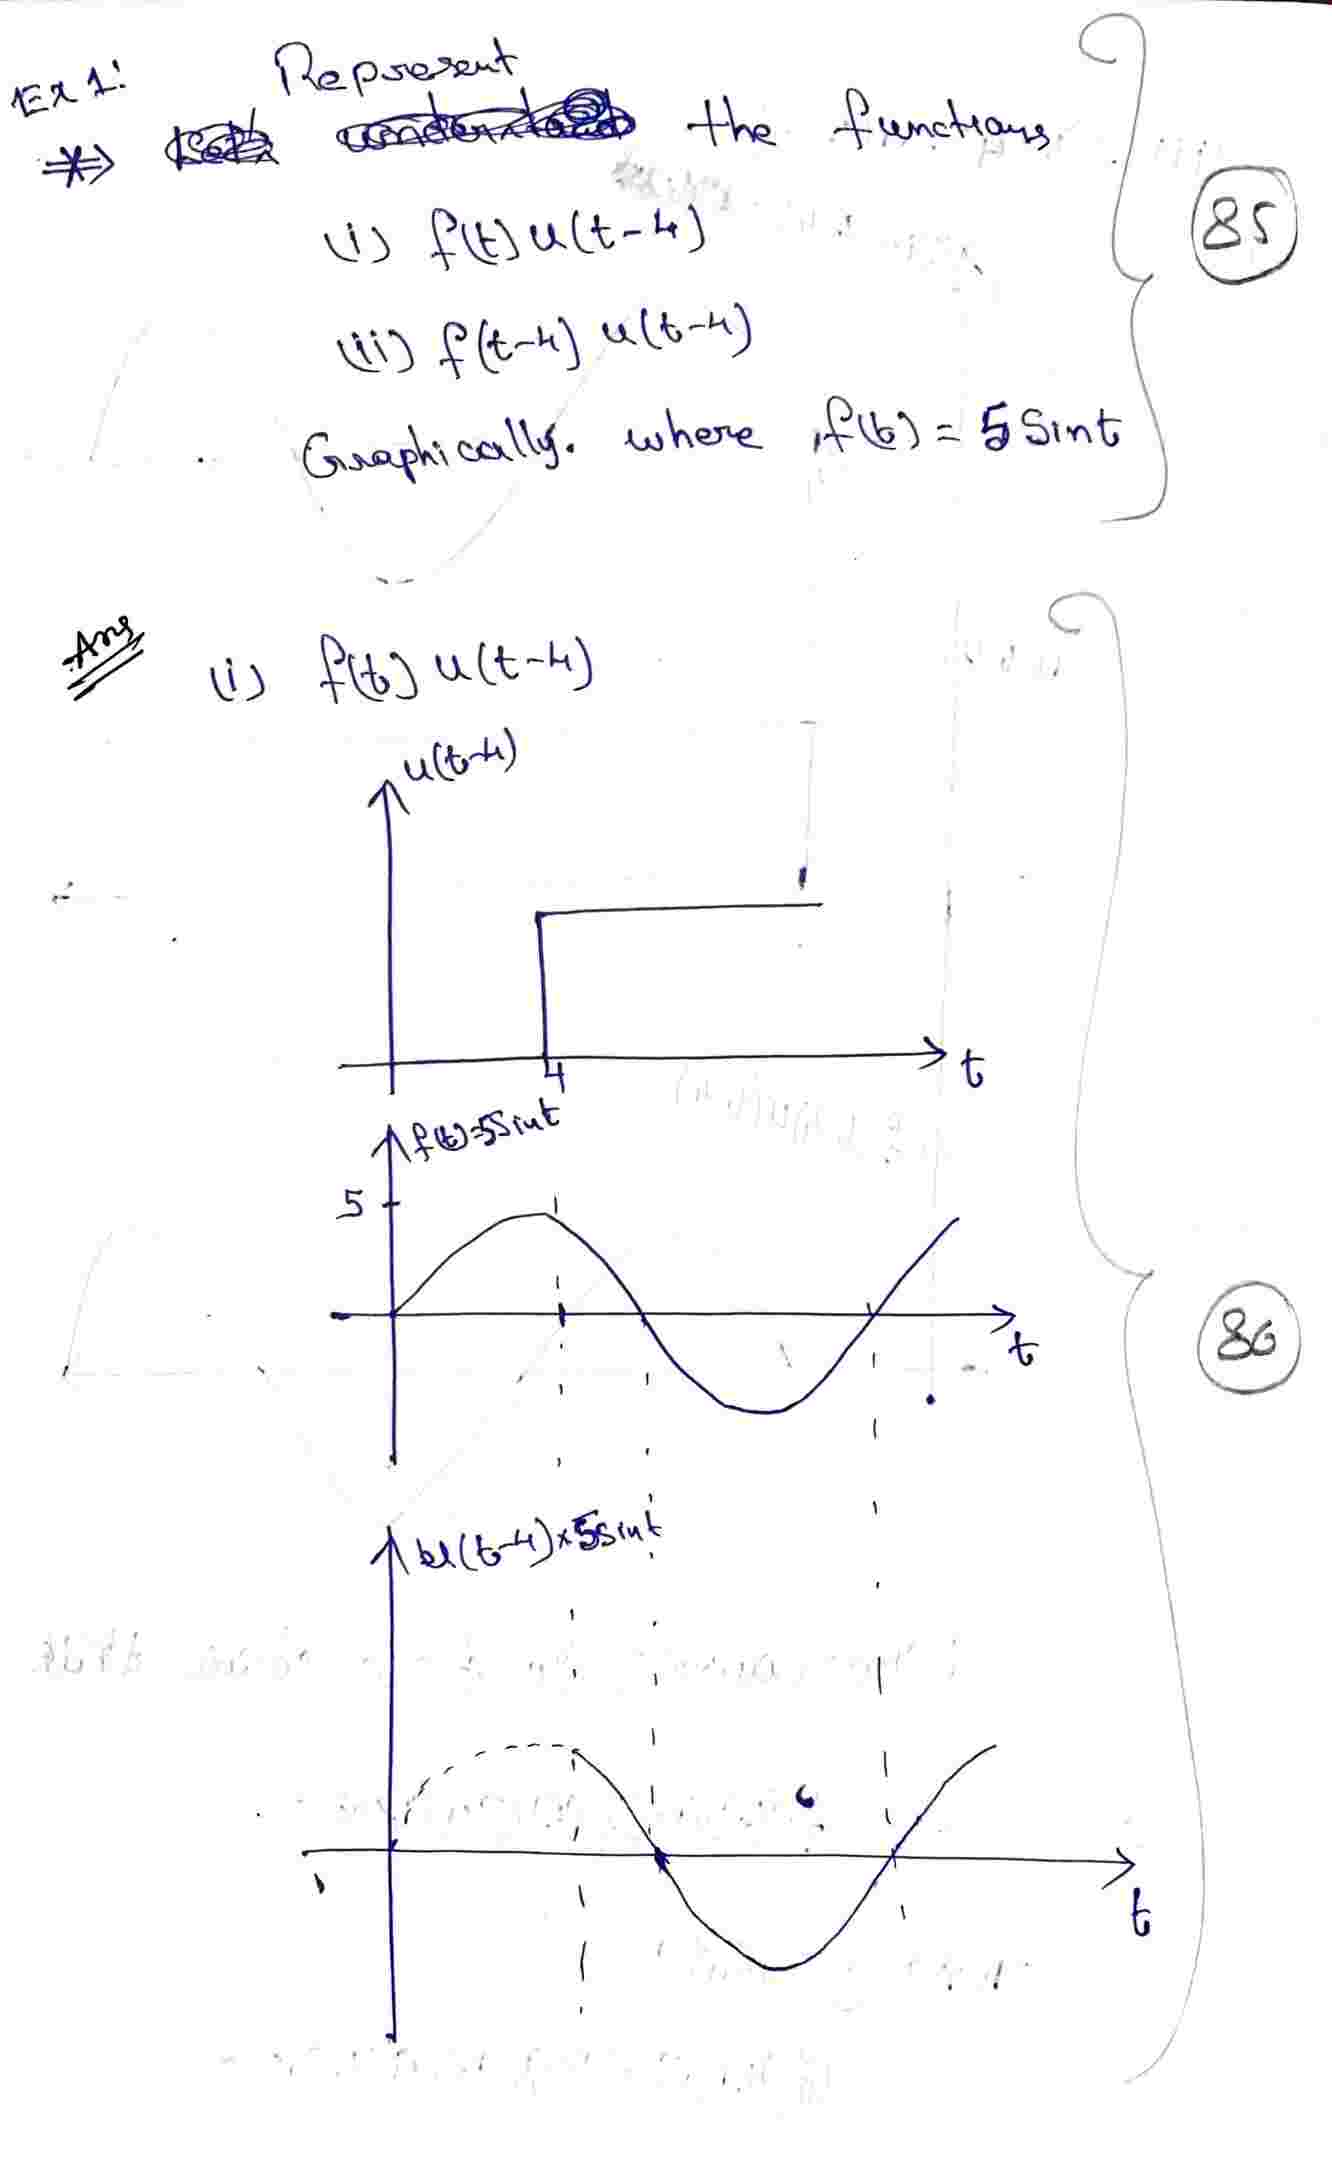 Ex 1:
Represent
⇒ the functions
(i) f(t) u(t-4)
(ii) f(t-4) u(t-4)
Graphically. where f(t) = 5 Sint
85
Ans
(i) f(t) u(t-4)
u(t-4)
4
t
f(t)=5Sint
5
t
86
u(t-4)×5Sint
t